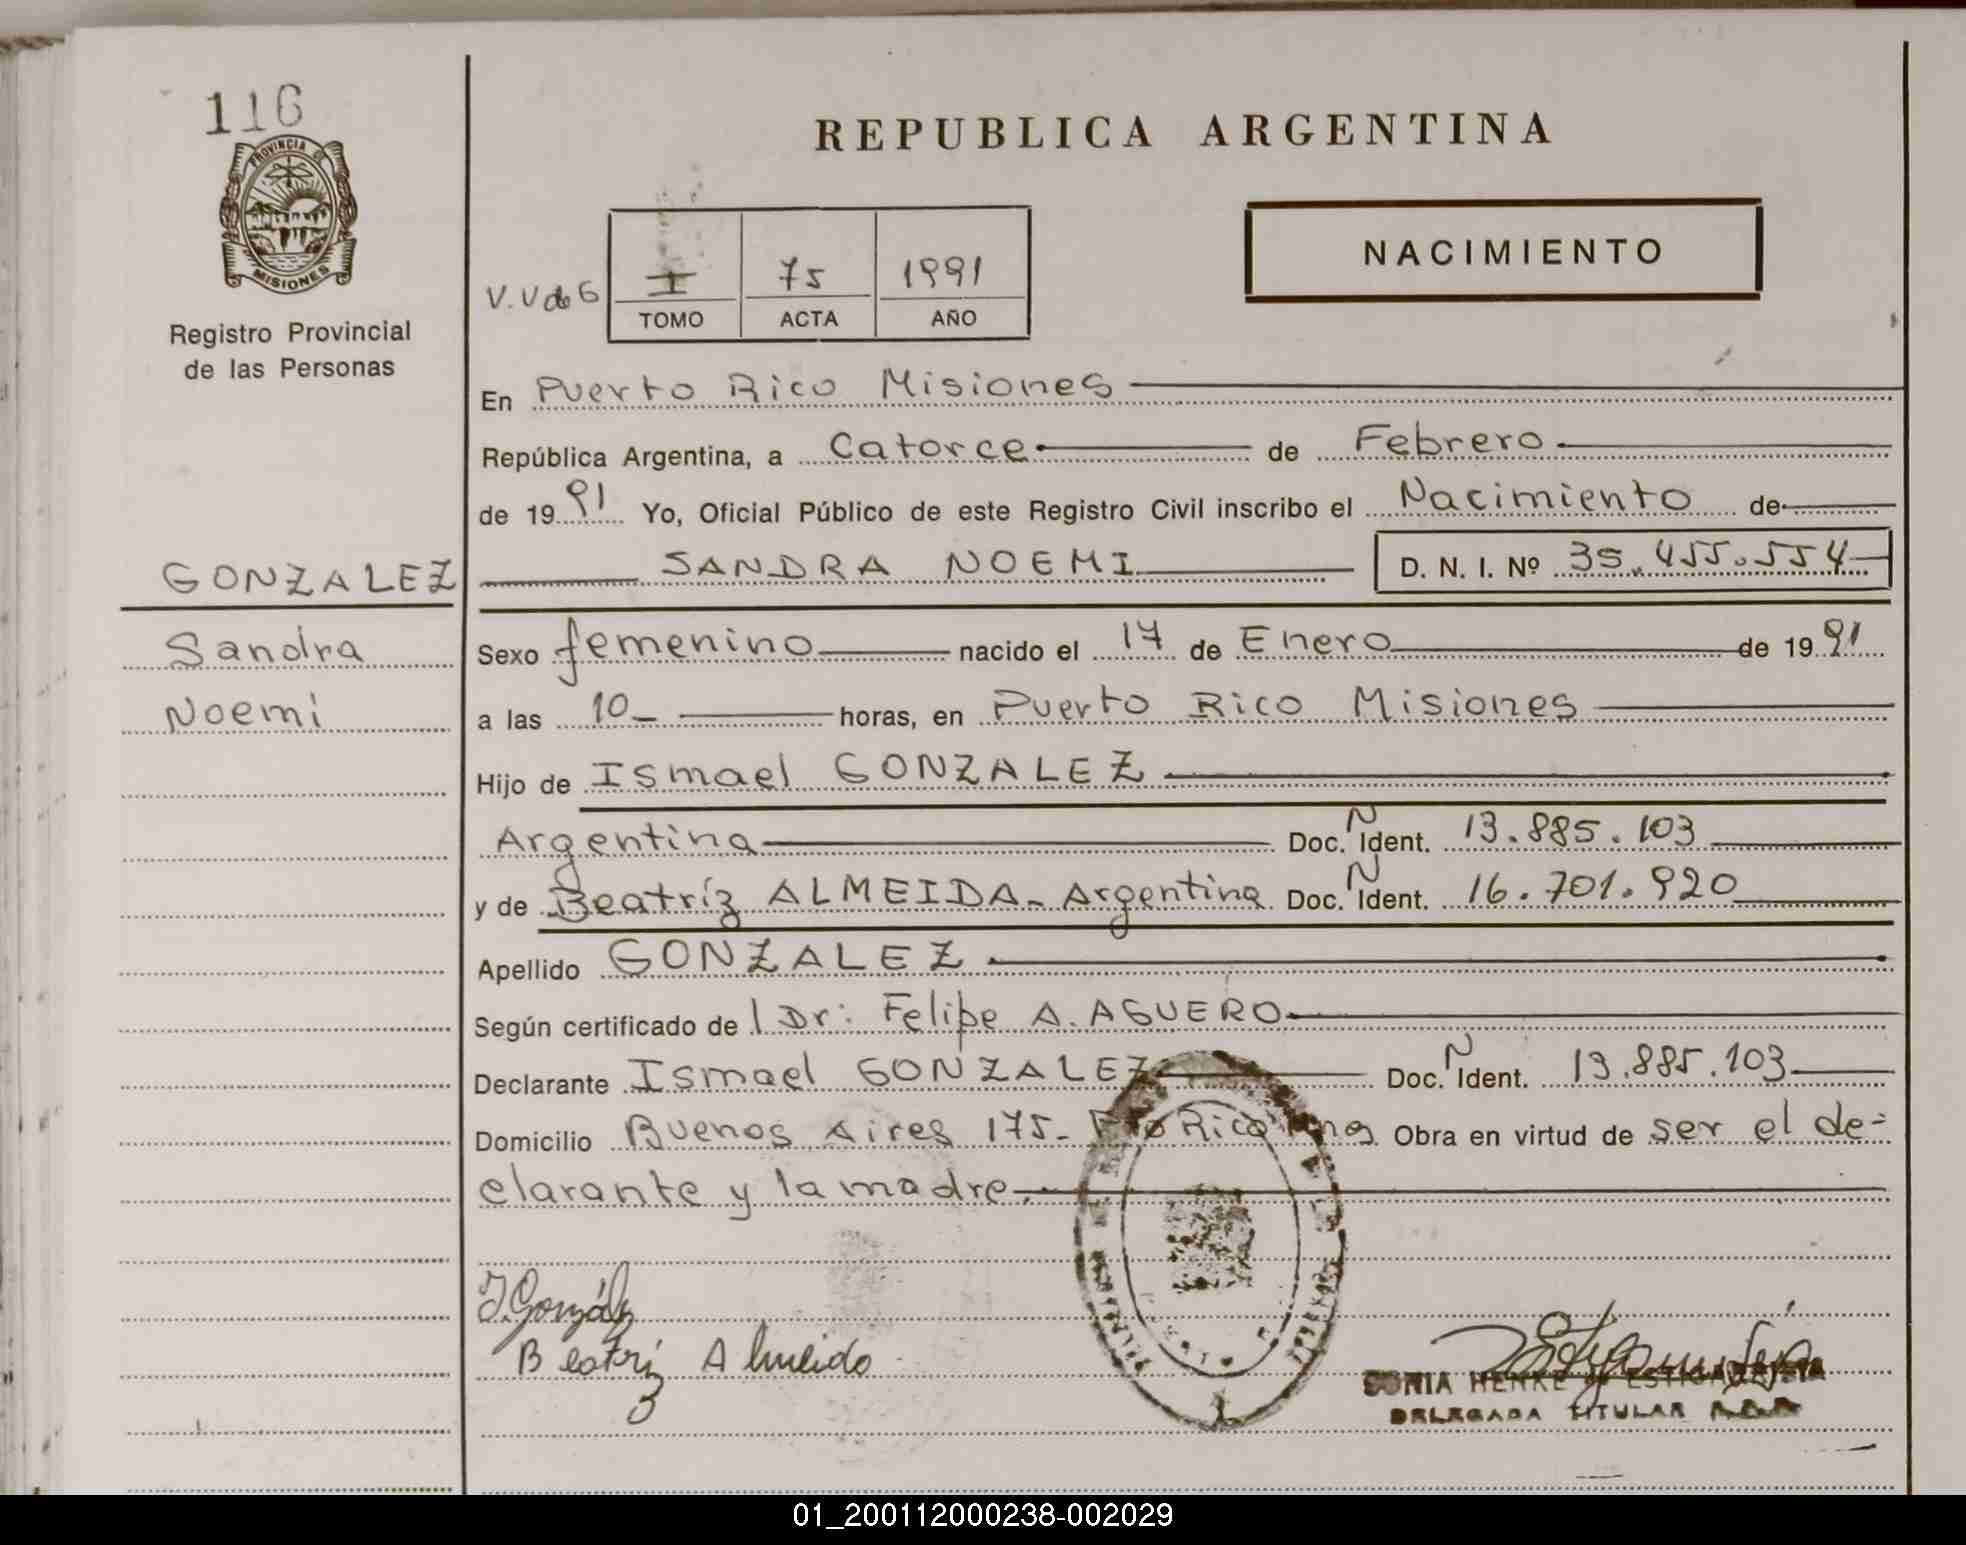 116
PROVINCIA DE
MISIONES
Registro Provincial
de las Personas
REPUBLICA ARGENTINA
NACIMIENTO
V. U de G
I 75 1991
TOMO ACTA AÑO
En Puerto Rico Misiones
República Argentina, a Catorce de Febrero
de 1991 Yo, Oficial Público de este Registro Civil inscribo el Nacimiento de
GONZALEZ SANDRA NOEMI D. N. I. Nº 35.455.554
Sandra
Noemi
Sexo femenino nacido el 17 de Enero de 1991
a las 10 horas, en Puerto Rico Misiones
Hijo de Ismael GONZALEZ
Argentina Doc. N Ident. 13.885.103
y de Beatríz ALMEIDA - Argentina Doc. N Ident. 16.701.920
Apellido GONZALEZ
Según certificado de l Dr: Felipe A. AGUERO
Declarante Ismael GONZALEZ Doc. N Ident. 13.885.103
Domicilio Buenos Aires 175- Pto Rico Mnes Obra en virtud de ser el de=
clarante y la madre.
I. González
Beatriz Almeida
SONIA HENKE
DELEGADA TITULAR
01_200112000238-002029